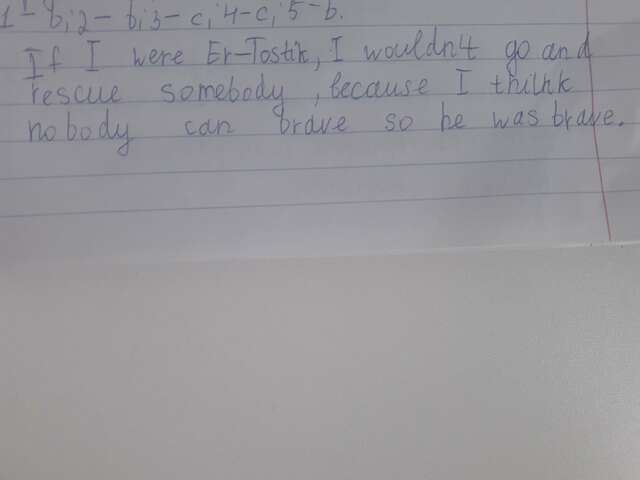 1 - b, 2 - b, 3 - c, 4 - c, 5 - b.
If I were Er-Tostik, I wouldn't go and
rescue somebody, because I thihk
nobody can brave so he was brave.